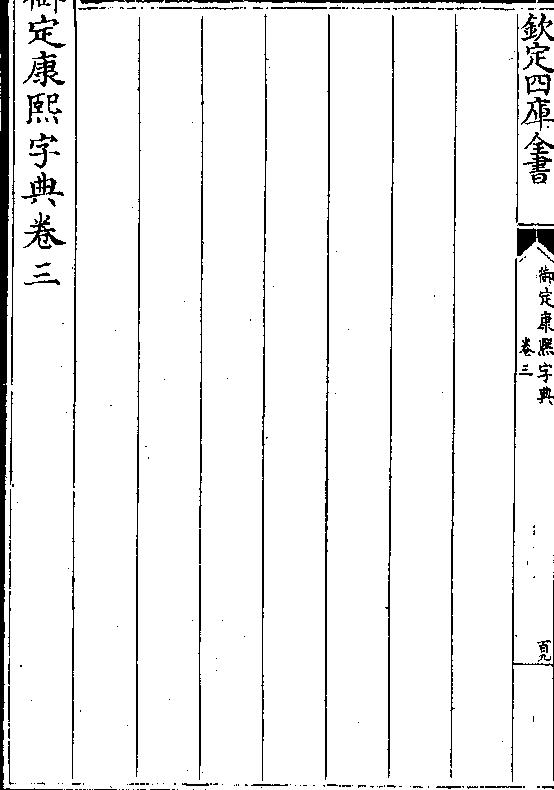 欽定四庫全書
御定康熙字典
卷三
御定康熙字典卷三